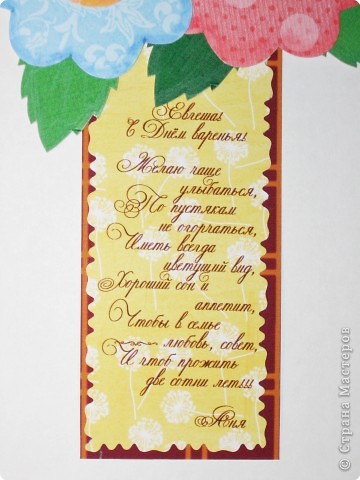 Евгеша!
С Днём варенья!
Желаю чаще
улыбаться,
По пустякам
не огорчаться,
Иметь всегда
цветущий вид,
Хороший сон и
аппетит,
Чтобы в семье
любовь, совет,
И чтоб прожить
две сотни лет!!!
Авия
© Страна Мастеров